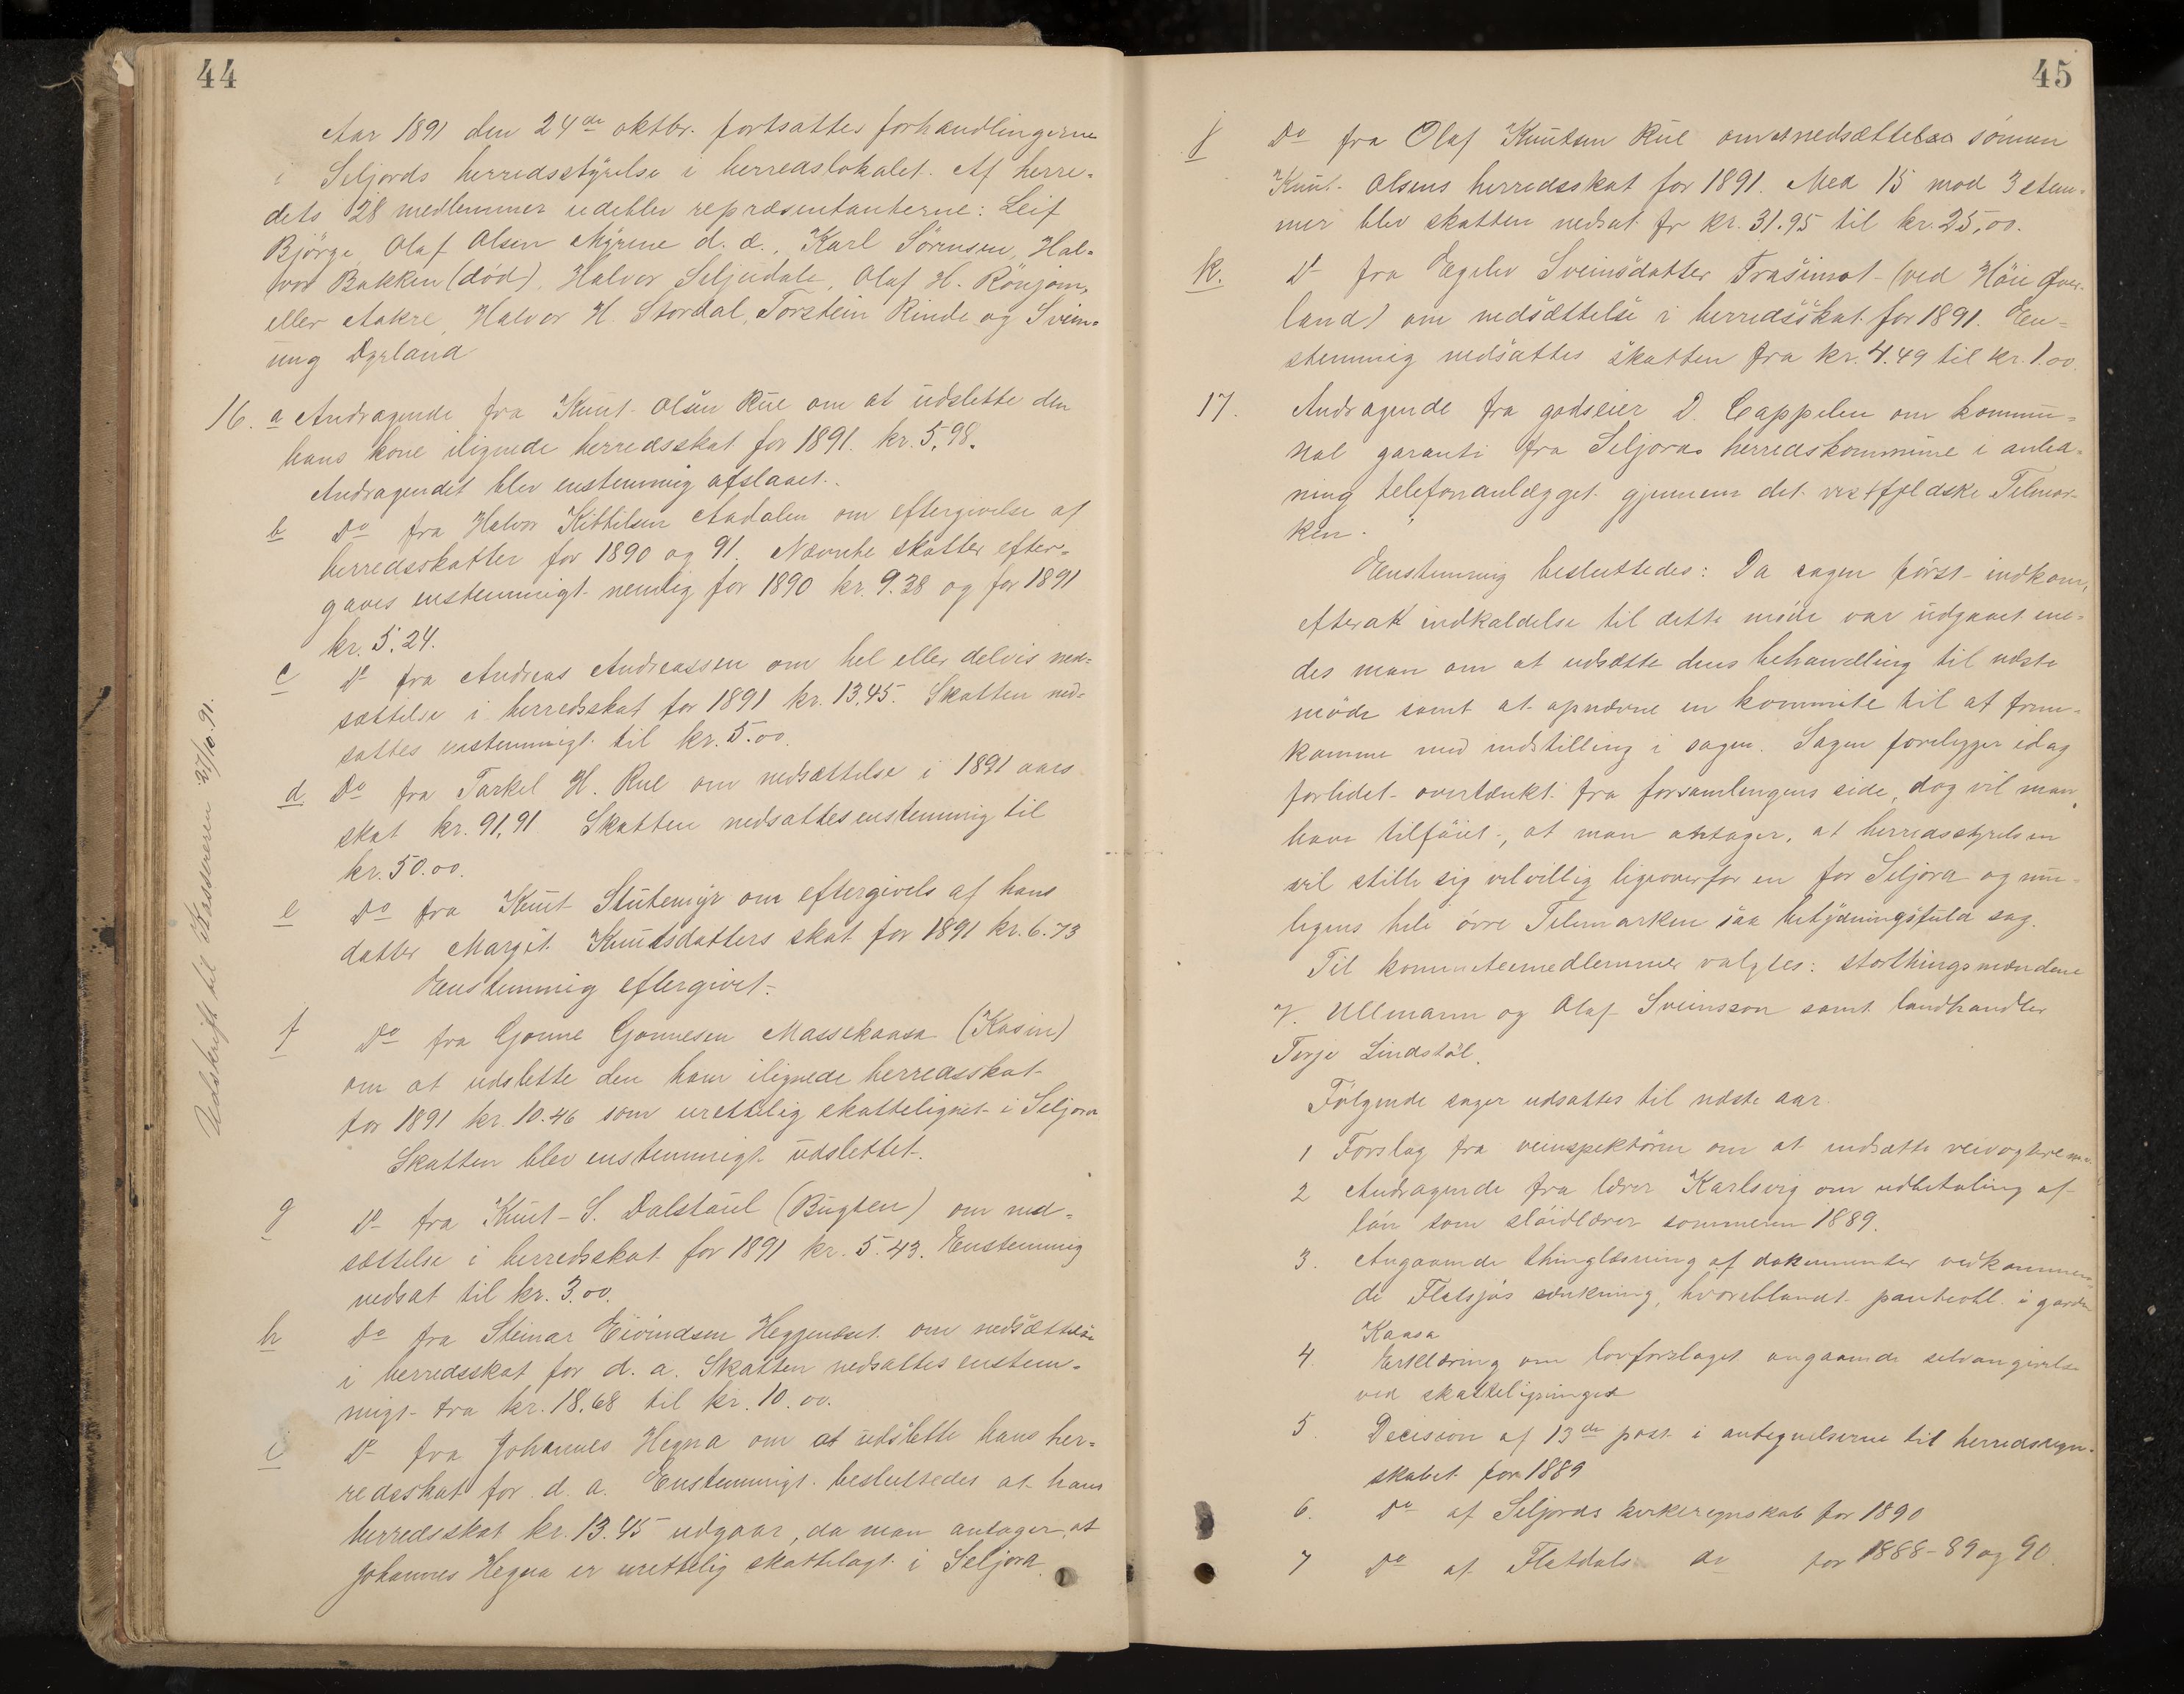 44
Aar 1891 den 24de oktbr. fortsattes forhandlingerne
i Seljords herredsstyrelse i herredslokalet. Af herre-
dets 28 medlemmer udeblev repræsentanterne: Leif
Bjørge, Olaf Olsen Myrene d. æ., Karl Sørensen, Hal-
vor Bakken (død), Halvor Seljedale, Olaf H. Rønjom,
eller Aakre, Halvor H. Stordal, Torstein Rinde og Svein-
ung Dyrland
16. a Andragende fra Knut Olsen Rue om at udslette den
hans kone ilignede herredsskat for 1891. kr. 5,98.
Andragendet blev enstemmig afslaaet.
b Do fra Halvor Kittilsen Aadalen om eftergivelse af
herredsskatter for 1890 og 91. Nævnte skatter efter-
gaves enstemmigt nemlig for 1890 kr. 9.38 og for 1891
kr. 5.24.
c Do fra Andreas Andreassen om hel eller delvis ned-
sættelse i herredsskat for 1891 kr. 13.45. Skatten ned-
sattes enstemmigt til kr. 5.00.
d. Do fra Tarkel H. Rue om nedsættelse i 1891 aars
skat kr. 91,91 Skatten nedsattes enstemmig til
kr. 50.00.
e Do fra Knut Stutemyr om eftergivels af hans
datter Margit Knutsdatters skat for 1891 kr. 6.73
Enstemmig eftergivet.
f Do fra Gonne Gonnesen Massekaasa (Kasin)
om at udslette den ham ilignede herredsskat
for 1891 kr. 10.46 som urettelig skattelignet i Seljord
Skatten blev enstemmigt udslettet.
g Do fra Knut S. Dalstaul (Bugten) om ned-
sættelse i herredsskat for 1891 kr. 5.43. Enstemmig
nedsat til kr. 3.00.
h Do fra Steinar Eivindsen Heggenæset om nedsættelse
i herredsskat for d. a. Skatten nedsattes enstem-
migt fra kr. 18.68 til kr. 10.00.
i Do fra Johannes Hegna om at udslette hans her-
redsskat for d. a. Enstemmigt besluttedes at hans
herredsskat kr. 13.45 udgaar, da man antager, at
Johannes Hegna er urettelig skattelagt i Seljord.
Udskrift til kassereren 27/10.91.
45
j Do fra Olaf Knutsen Rue om at nedsætte sønnen
Knut Olsens herredsskat for 1891. Med 15 mod 3 stem-
mer blev skatten nedsat fr kr. 31.95 til kr. 25,00.
k. Do fra Egelev Sveinsdatter Trasimot (ved Høie Øver-
land) om nedsættelse i herredsskat for 1891. En-
stemmig nedsattes skatten fra kr. 4.49 til kr. 1.00.
17. Andragende fra godseier D. Cappelen om kommu-
nal garanti fra Seljords herredskommune i anled-
ning telefonanlægget gjennem det vestfjeldske Telemar-
ken.
Enstemmig besluttedes: Da sagen først indkom,
efterat indkaldelse til dette møde var udgaaet ene-
des man om at udsætte dens behandling til næste
møde samt at opnævne en kommite til at frem-
komme med indstilling i sagen. Sagen foreligger idag
forlidet overtænkt fra forsamlingens side, dog vil man
have tilføiet, at man antager, at herredsstyrelsen
vil stille sig velvillig ligeoverfor en for Seljord og mu-
ligens hele øvre Telemarken saa betydningsfuld sag.
Til kommiteemedlemmer valgtes: storthingsmændene
V. Ullmann og Olaf Sveinsson samt landhandler
Terje Lindstøl.
Følgende sager udsattes til næste aar.
1 Forslag fra veinspektøren om at indsætte veivogtere m.v.
2 Andragende fra lærer Karlsvig om udbetaling af
løn som sløidlærer sommeren 1889.
3. Angaaende thinglæsning af dokumenter vedkommen-
de Flatsjøs sænkning, hvoriblandt panteobl. i gaarden
Kaasa
4. Erklæring om lovforslaget angaaende selvangivelse
ved skatteligninger
5. Decision af 13de post i antegnelserne til herredsregn-
skabet for 1889
6. Do af Seljords kirkeregnskab for 1890
7 Do af Flatdals do for 1888-89 og 90.